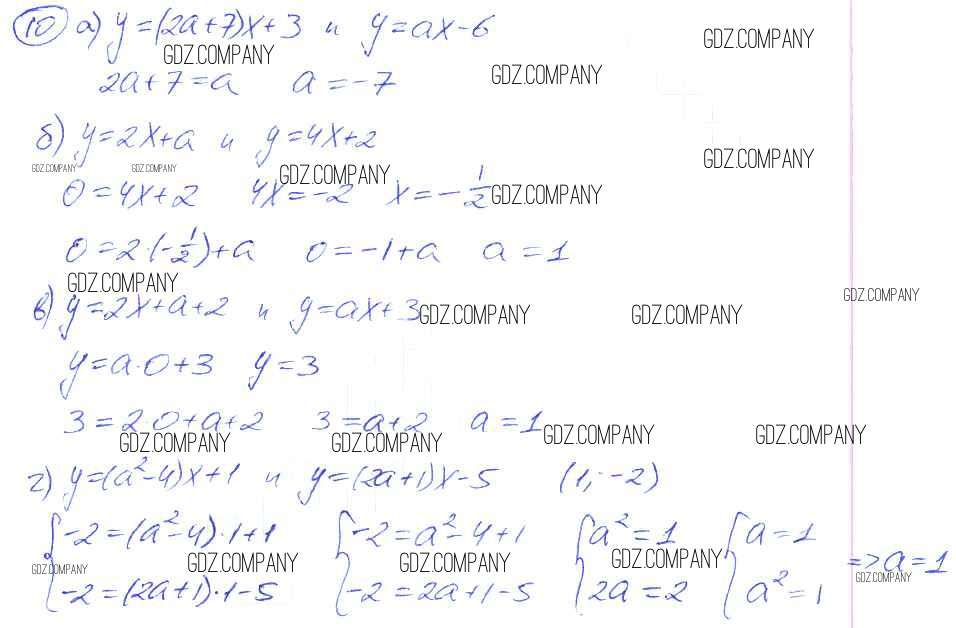 10 а) y=(2a+7)x+3 и y=ax-6
GDZ.COMPANY GDZ.COMPANY
2a+7=a a=-7 GDZ.COMPANY
б) y=2x+a и y=4x+2
GDZ.COMPANY GDZ.COMPANY GDZ.COMPANY GDZ.COMPANY
0=4x+2 4x=-2 x=-1/2 GDZ.COMPANY
0=2·(-1/2)+a 0=-1+a a=1
GDZ.COMPANY GDZ.COMPANY
в) y=2x+a+2 и y=ax+3 GDZ.COMPANY GDZ.COMPANY
y=a·0+3 y=3
3=2·0+a+2 3=a+2 a=1
GDZ.COMPANY GDZ.COMPANY GDZ.COMPANY GDZ.COMPANY
г) y=(a²-4)x+1 и y=(2a+1)x-5 (1;-2)
{-2=(a²-4)·1+1 {-2=a²-4+1 {a²=1 {a=1
GDZ.COMPANY GDZ.COMPANY GDZ.COMPANY GDZ.COMPANY => a=1
GDZ.COMPANY
-2=(2a+1)·1-5 -2=2a+1-5 2a=2 a²=1